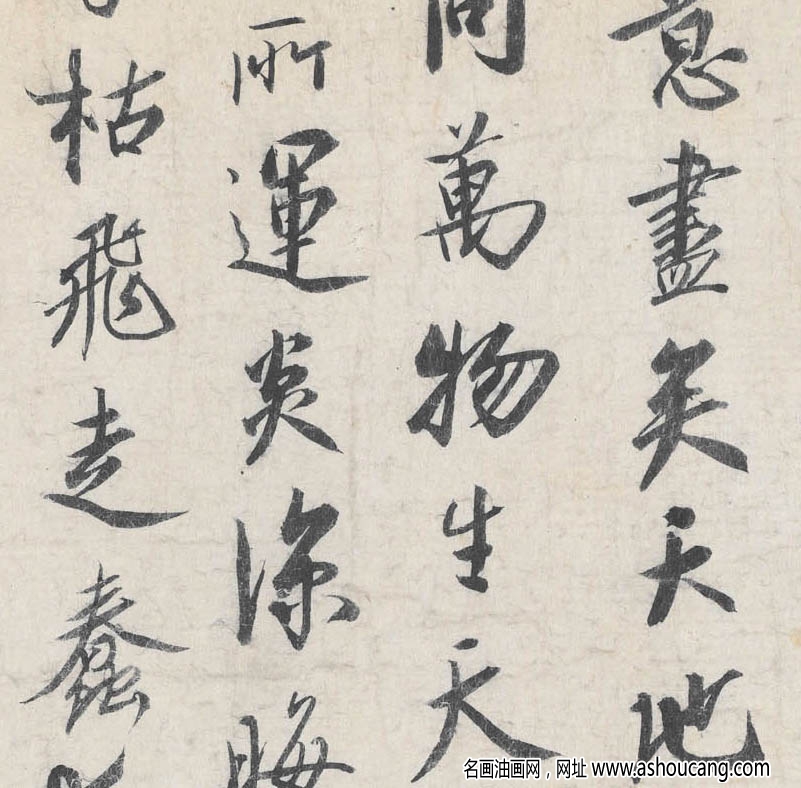 意盡矣天地
萬物生天
所運炎涼晦
枯飛走蠢
名画油画网，网址 www.ashoucang.com